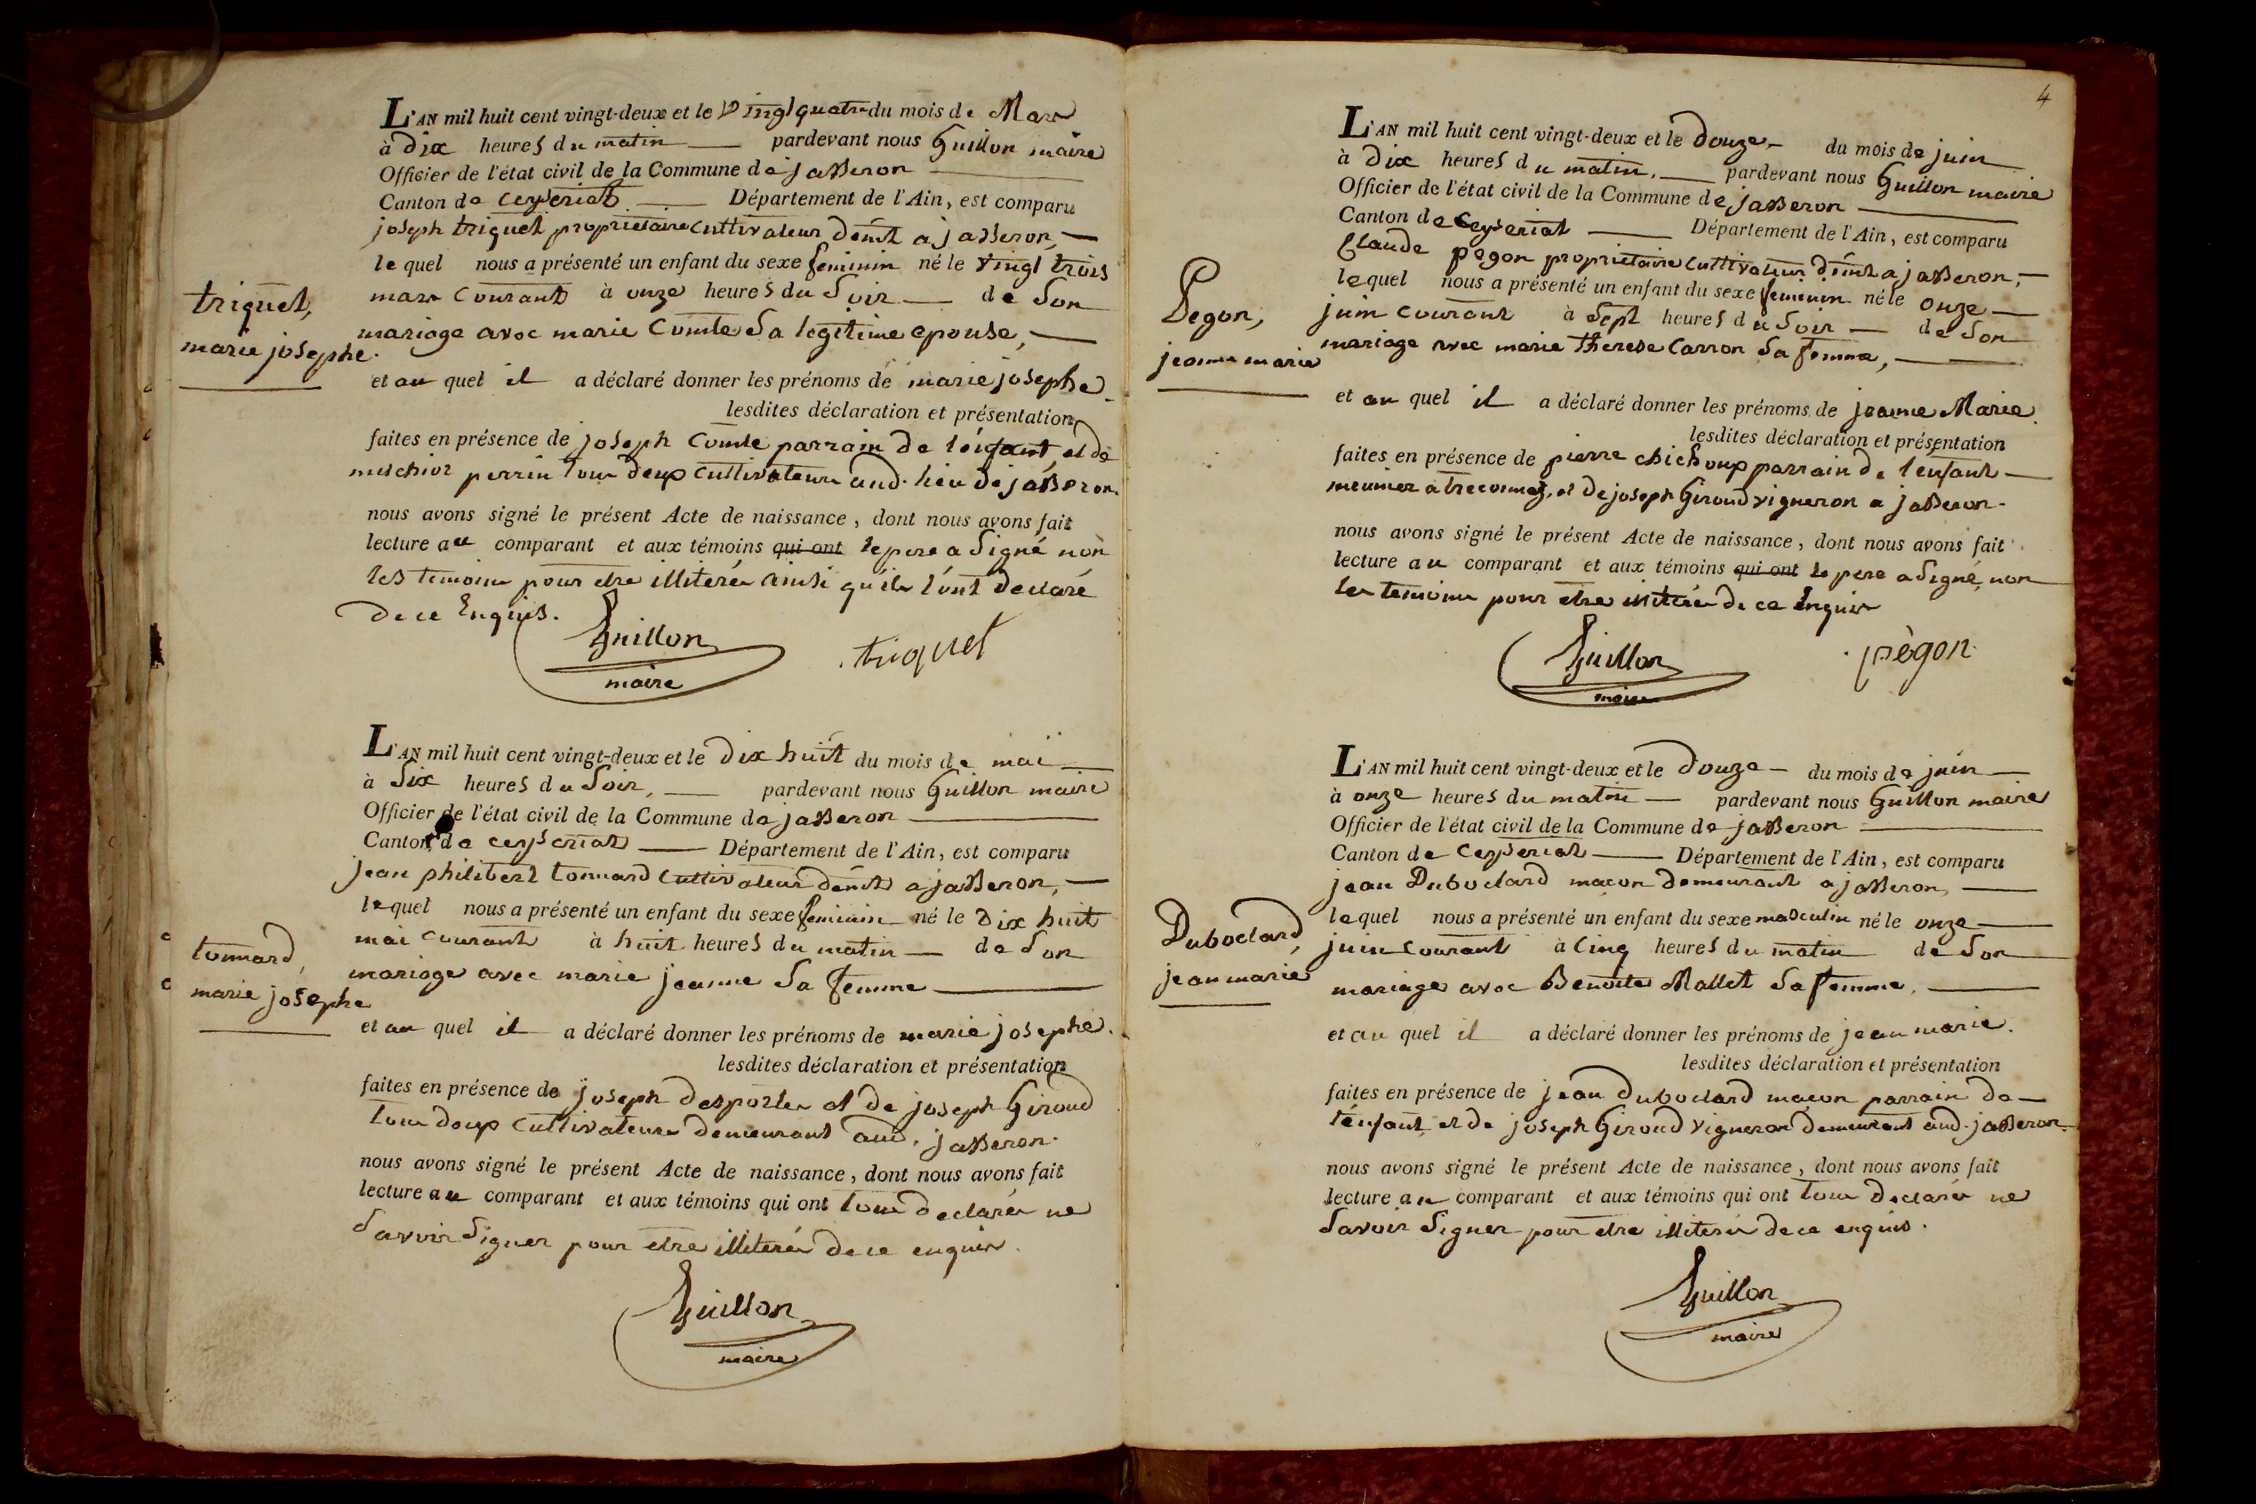 L'AN mil huit cent vingt-deux et le vingt quatre du mois de Mars
à dix heures du matin pardevant nous Guillon maire
Officier de l'état civil de la Commune de jasseron
Canton de ceyseriat Département de l'Ain, est comparu
joseph triquet proprietaire Cultivateur demt a jasseron
le quel nous a présenté un enfant du sexe feminin né le vingt trois
mars Courant à onze heures du Soir de Son
triquet,
mariage avec marie Comte Sa legitime epouse,
marie josephe.
et au quel il a déclaré donner les prénoms de marie josephe
lesdites déclaration et présentation
faites en présence de joseph Comte parrain de l'enfant, et de
melchior perrin tous deux Cultivateurs aud. lieu de jasseron.
nous avons signé le présent Acte de naissance, dont nous avons fait
lecture au comparant et aux témoins qui ont le pere a Signé non
les temoins pour etre illiterés ainsi qu'ils l'ont declaré
de ce Enquis.
Guillon
maire
triquet
L'AN mil huit cent vingt-deux et le dix huit du mois de mai
à Six heures du Soir, pardevant nous Guillon maire
Officier de l'état civil de la Commune de jasseron
Canton de ceyseriat Département de l'Ain, est comparu
jean philibert tonnard Cultivateur demt a jasseron,
le quel nous a présenté un enfant du sexe feminin né le Dix huit
mai Courant à huit heures du matin de Son
tonnard,
mariage avec marie jeanne Sa femme
marie josephe
et au quel il a déclaré donner les prénoms de marie josephe.
lesdites déclaration et présentation
faites en présence de joseph desportes et de joseph Giroud
tous deux Cultivateurs demeurant aud. jasseron.
nous avons signé le présent Acte de naissance, dont nous avons fait
lecture au comparant et aux témoins qui ont tous declarés ne
Savoir Signer pour etre illiterés de ce enquis.
Guillon
maire
4
L'AN mil huit cent vingt-deux et le douze du mois de juin
à Dix heures du matin, pardevant nous Guillon maire
Officier de l'état civil de la Commune de jasseron
Canton de ceyseriat Département de l'Ain, est comparu
Claude pegon proprietaire Cultivateur demt a jasseron,
le quel nous a présenté un enfant du sexe feminin né le onze
Pegon,
juin Courant à Sept heures du Soir de Son
mariage avec marie therese Carron Sa femme,
jeanne marie
et au quel il a déclaré donner les prénoms de jeanne Marie.
lesdites déclaration et présentation
faites en présence de pierre chichoux parrain de l'enfant
meunier a treconnas, et de joseph Giroud vigneron a jasseron.
nous avons signé le présent Acte de naissance, dont nous avons fait
lecture au comparant et aux témoins qui ont le pere a Signé, non
les temoins pour etre illiterés de ce Enquis
Guillon
maire
pègon
L'AN mil huit cent vingt-deux et le douze du mois de juin
à onze heures du matin pardevant nous Guillon maire
Officier de l'état civil de la Commune de jasseron
Canton de Ceyseriat Département de l'Ain, est comparu
jean Duboclard maçon demeurant a jasseron,
le quel nous a présenté un enfant du sexe masculin né le onze
Duboclard,
juin Courant à Cinq heures du matin de Son
jean marie
mariage avec Benoite Mallet Sa femme,
et au quel il a déclaré donner les prénoms de jean marie.
lesdites déclaration et présentation
faites en présence de jean duboclard maçon parrain de
l'enfant, et de joseph Giroud vigneron demeurant aud. jasseron.
nous avons signé le présent Acte de naissance, dont nous avons fait
lecture au comparant et aux témoins qui ont tous declarés ne
Savoir Signer pour etre illiterés de ce enquis.
Guillon
maire